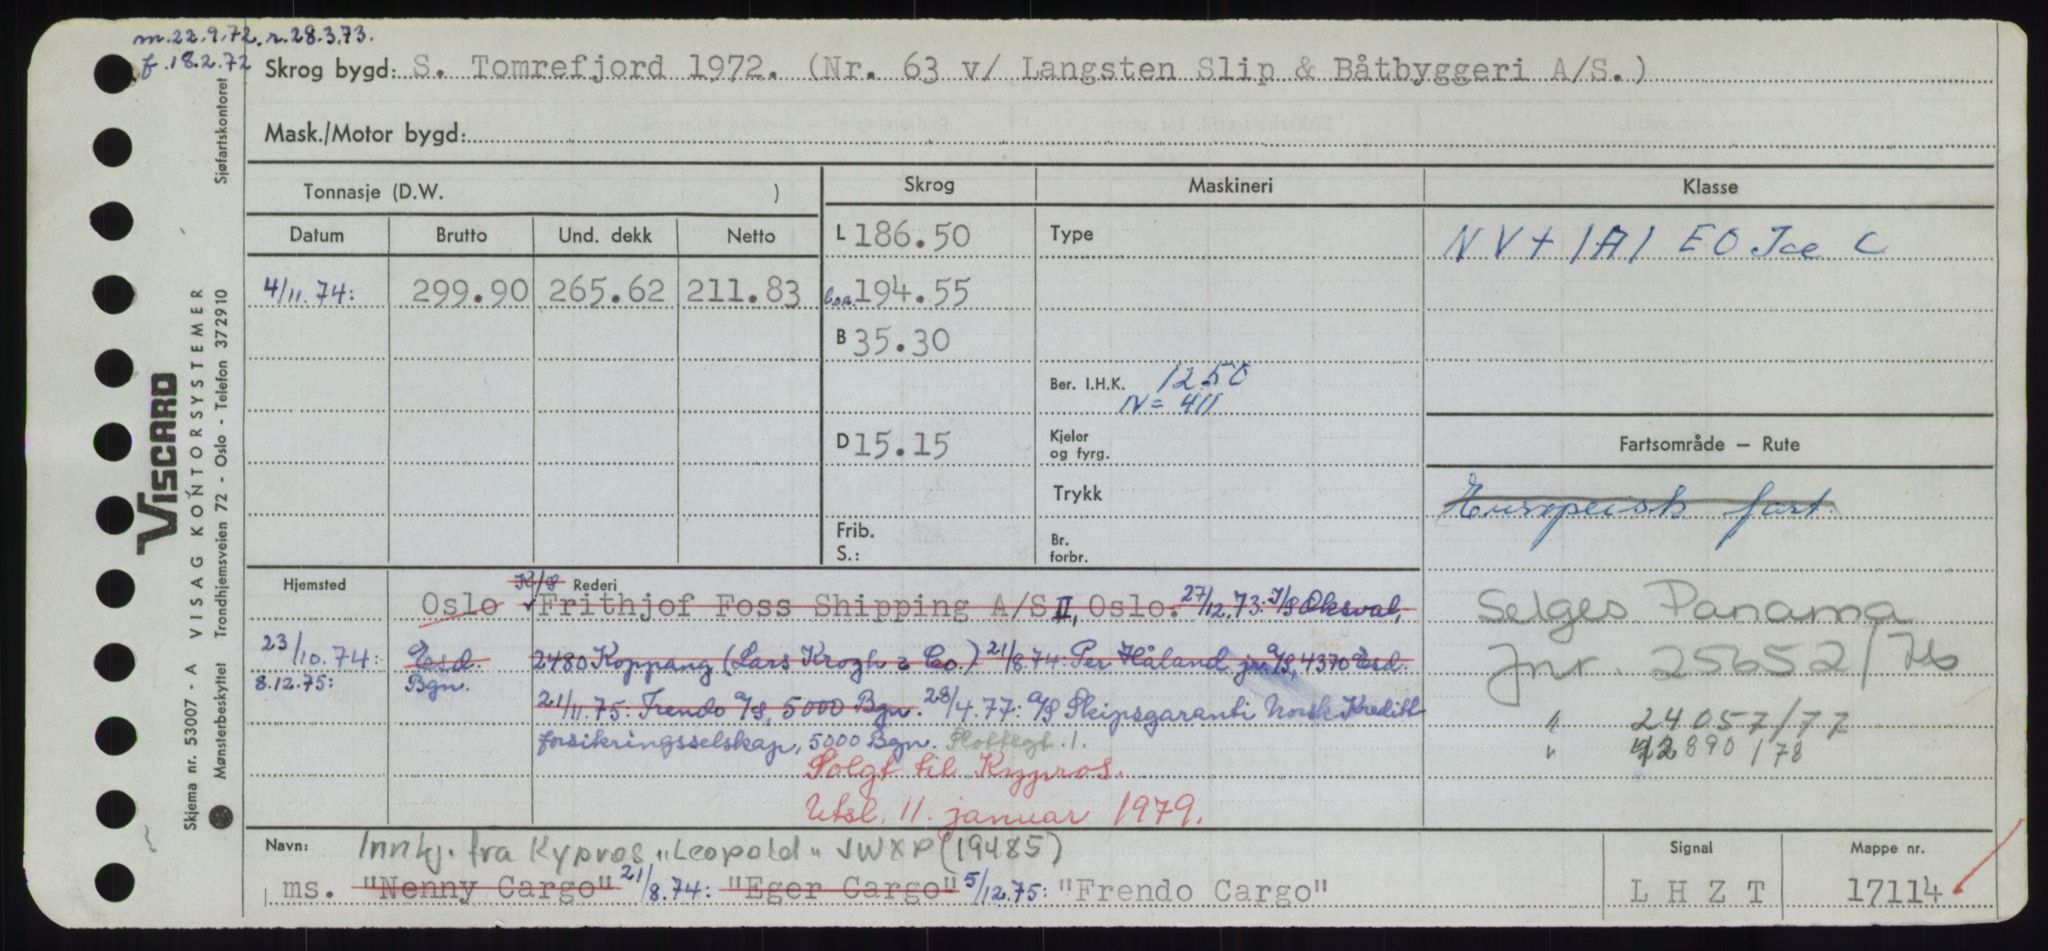 m.22.9.72. r.28.3.73.
f.18.2.72
Skrog bygd: S. Tomrefjord 1972. (Nr. 63 v/ Langsten Slip & Båtbyggeri A/S.)
Mask./Motor bygd:
Tonnasje (D.W. )
Skrog
Maskineri
Klasse
Datum
Brutto
Und. dekk
Netto
L 186.50
Type
NV + 1A1 EO Ice C
4/11.74: 299.90 265.62 211.83
b.o.a. 194.55
B 35.30
Ber. I.H.K. 1250
N = 411
D 15.15
Kjeler og fyrg.
Trykk
Frib.
S.:
Br. forbr.
Fartsområde – Rute
Europeisk fart
Selges Panama
Jnr. 25652/76
" 24057/77
" 42890/78
Hjemsted
K/S
Rederi
Oslo Frithjof Foss Shipping A/S II, Oslo. 27/12.73: I/S Oksval,
23/10.74: Esd. 2480 Koppang (Lars Krogh & Co.) 21/8.74: Per Håland jr. A/S, 4370 Esd.
8.12.75: Bgn.
21/11.75: Frendo A/S, 5000 Bgn. 28/4.77: A/S Skipsgaranti Norsk Kreditt
forsikringsselskap, 5000 Bgn. Slottsgt. 1.
Solgt til Kypros.
Utsl. 11. januar 1979.
Navn: Innkj. fra Kypros "Leopold" JWXP (19485)
ms. "Nenny Cargo" 21/8.74: "Eger Cargo" 5/12.75: "Frendo Cargo"
Signal
L H Z T
Mappe nr.
17114
VISCARD
Skjema nr. 53007 - A VISAG KONTORSYSTEMER
Mønsterbeskyttet Trondhjemsveien 72 - Oslo - Telefon 372910
Sjøfartskontoret